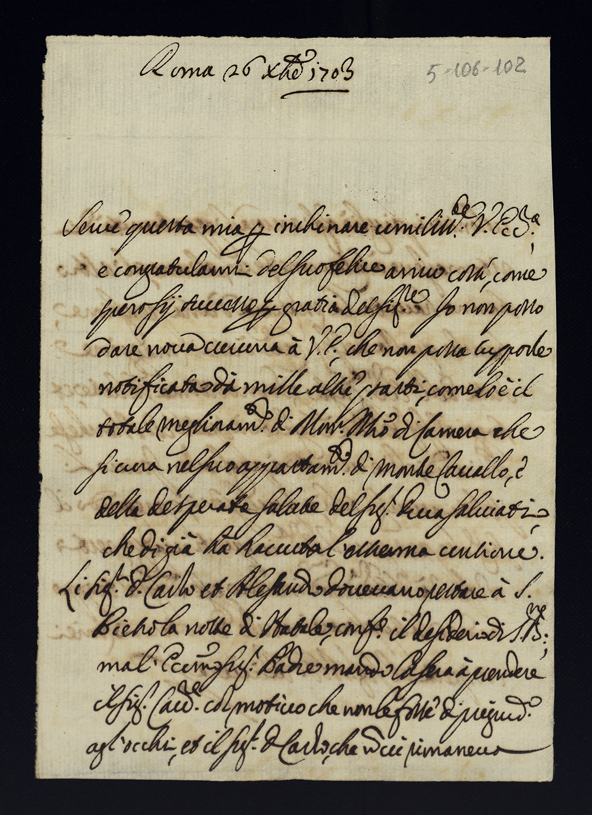 Roma 26 Xbre 1703
5-106-102
Serve questa mia p inchinare umilmte. V. Ecca.
e congratularmi del suo felice arrivo costì, come
spero sij successo p gratia del Sigre. Io non posso
dare nova veruna à V. E., che non possa supporle
notificata dà mille altre parti, come lo è il
totale meglioramto. di Monr. Mro. di Camera che
si cura nel suo appartamto. di Monte Cavallo, è
della desperata salute del Sigr. Duca Salviati,
che di già hà l'estrema untione.
Li Sigri. D. Carlo et Alesandro dovevano restare à S.
Pietro la notte di Natale, conforme il desiderio di S. Be.;
ma l' Eccmo. Sigr. Padre mandò la sera à prendere
il Sigr. Card. col motivo che non le fosse di pregiud.o
agl'occhi, et il Sigr. D. Carlo, che vi rimaneva